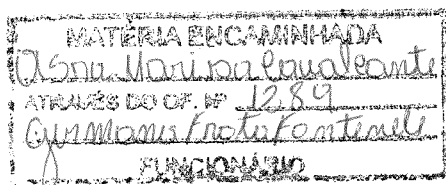 MATÉRIA ENCAMINHADA
A Sra Marisa Cavalcante
ATRAVÉS DO OF. Nº 1289
Frota Fontenele
FUNCIONÁRIO